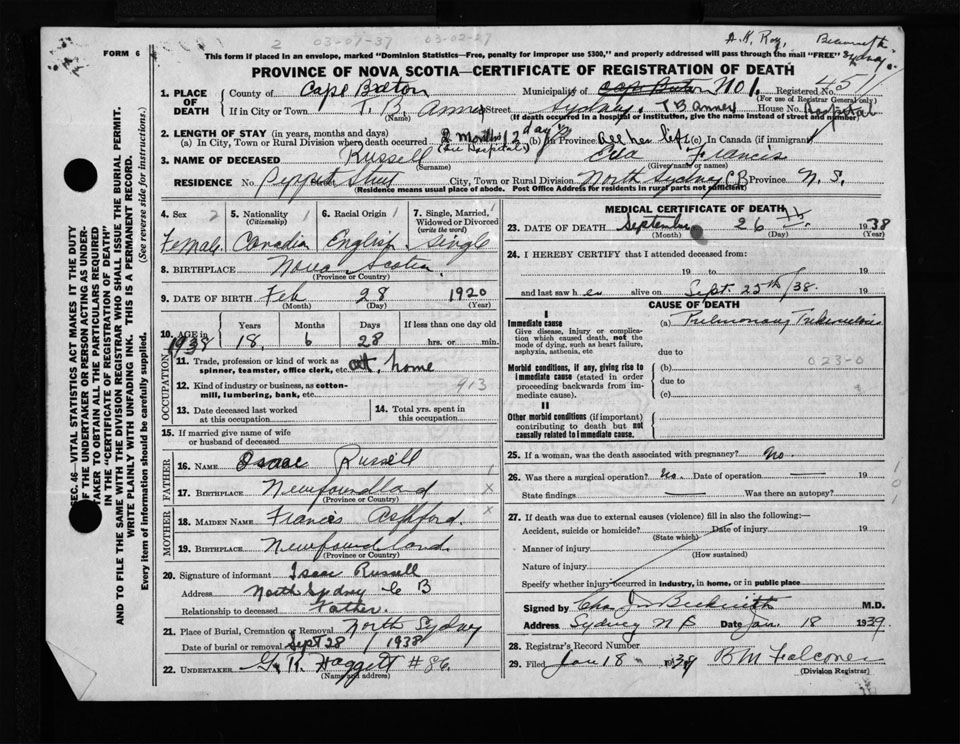 FORM 6
2 03-07-37 03-02-27
A. K. Roy,
Sydney
This form if placed in an envelope, marked "Dominion Statistics—Free, penalty for improper use $300," and properly addressed will pass through the mail "FREE"
PROVINCE OF NOVA SCOTIA—CERTIFICATE OF REGISTRATION OF DEATH
1. PLACE OF DEATH
County of Cape Breton Municipality of Cape Breton No 1. Registered No. 451
(For use of Registrar General only)
If in City or Town T. B. Annex Street Sydney. T B Annex House No. Hospital
(Name) (If death occurred in a hospital or institution, give the name instead of street and number)
2. LENGTH OF STAY (in years, months and days)
(a) In City, Town or Rural Division where death occurred 2 months 12 days (b) In Province All her life (c) In Canada (if immigrant)
(In Hospital)
3. NAME OF DECEASED Russell Ada Francis
(Surname) (Given name or names)
RESIDENCE No. Pippit Street City, Town or Rural Division North Sydney C.B Province N. S.
(Residence means usual place of abode. Post Office Address for residents in rural parts not sufficient)
4. Sex 2
Female
5. Nationality 1
(Citizenship)
Canadia
6. Racial Origin 1
English
7. Single, Married, Widowed or Divorced
(write the word)
Single
8. BIRTHPLACE Nova Scotia
(Province or Country)
9. DATE OF BIRTH Feb 28 1920
(Month) (Day) (Year)
10. AGE in 1938
Years Months Days If less than one day old
18 6 28 hrs. or min.
OCCUPATION
11. Trade, profession or kind of work as spinner, teamster, office clerk, etc. At home
12. Kind of industry or business, as cotton-mill, lumbering, bank, etc. 913
13. Date deceased last worked at this occupation
14. Total yrs. spent in this occupation
15. If married give name of wife or husband of deceased
FATHER
16. NAME Isaac Russell
17. BIRTHPLACE Newfoundland
(Province or Country)
MOTHER
18. MAIDEN NAME Francis Ashford.
19. BIRTHPLACE Newfoundland
(Province or Country)
20. Signature of informant Isaac Russell
Address North Sydney C B
Relationship to deceased Father.
21. Place of Burial, Cremation or Removal North Sydney
Date of burial or removal Sept 28 1938
22. UNDERTAKER G. K. Haggett #86
(Name and address)
MEDICAL CERTIFICATE OF DEATH
23. DATE OF DEATH September 26 th 1938
(Month) (Day) (Year)
24. I HEREBY CERTIFY that I attended deceased from:
19 to 19
and last saw h er alive on Sept. 25th/38. 19
CAUSE OF DEATH
I
Immediate cause
Give disease, injury or complication which caused death, not the mode of dying, such as heart failure, asphyxia, asthenia, etc
(a) Pulmonary Tuberculosis
due to
Morbid conditions, if any, giving rise to immediate cause (stated in order proceeding backwards from immediate cause).
(b)
023-0
due to
(c)
II
Other morbid conditions (if important) contributing to death but not causally related to immediate cause.
25. If a woman, was the death associated with pregnancy? No.
26. Was there a surgical operation? No. Date of operation — 19
State findings — Was there an autopsy?
27. If death was due to external causes (violence) fill in also the following:—
Accident, suicide or homicide? Date of injury 19
(State which)
Manner of injury
(How sustained)
Nature of injury
Specify whether injury occurred in industry, in home, or in public place
Signed by Chas J. Beckwith M.D.
Address Sydney N S Date Jan. 18 1939.
28. Registrar's Record Number
29. Filed Jan 18 1939 B M Falconer
(Division Registrar)
SEC. 46—VITAL STATISTICS ACT MAKES IT THE DUTY OF THE UNDERTAKER OR PERSON ACTING AS UNDERTAKER TO OBTAIN ALL THE PARTICULARS REQUIRED IN THE "CERTIFICATE OF REGISTRATION OF DEATH"
AND TO FILE THE SAME WITH THE DIVISION REGISTRAR WHO SHALL ISSUE THE BURIAL PERMIT.
WRITE PLAINLY WITH UNFADING INK. THIS IS A PERMANENT RECORD.
Every item of information should be carefully supplied. (See reverse side for instructions.)